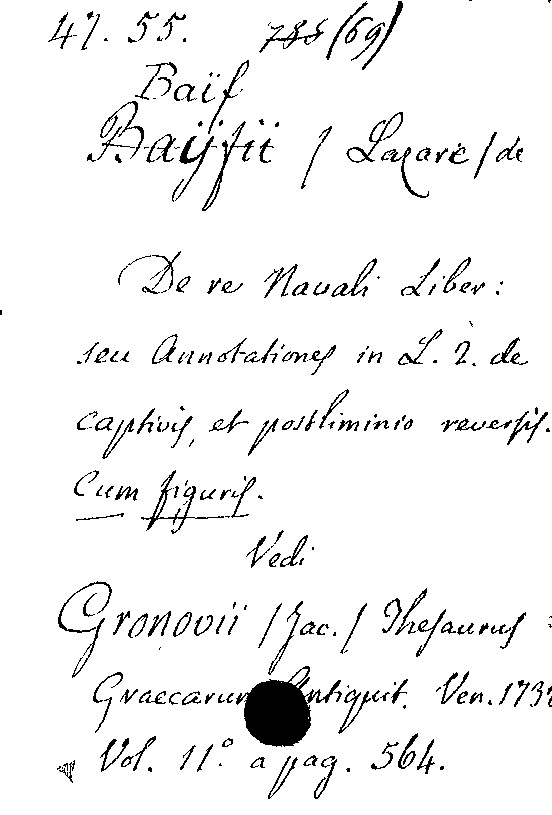 47. 55. (69)
Baïf
Baÿfii / Lazare / de
De re Navali Liber:
seu Annotationes in L. 2. de
captivis, et postliminio reversis.
Cum figuris.
Vedi
Gronovii / Jac. / Thesaurus
Graecarum Antiquit. Ven.
Vol. 11.° a pag. 564.